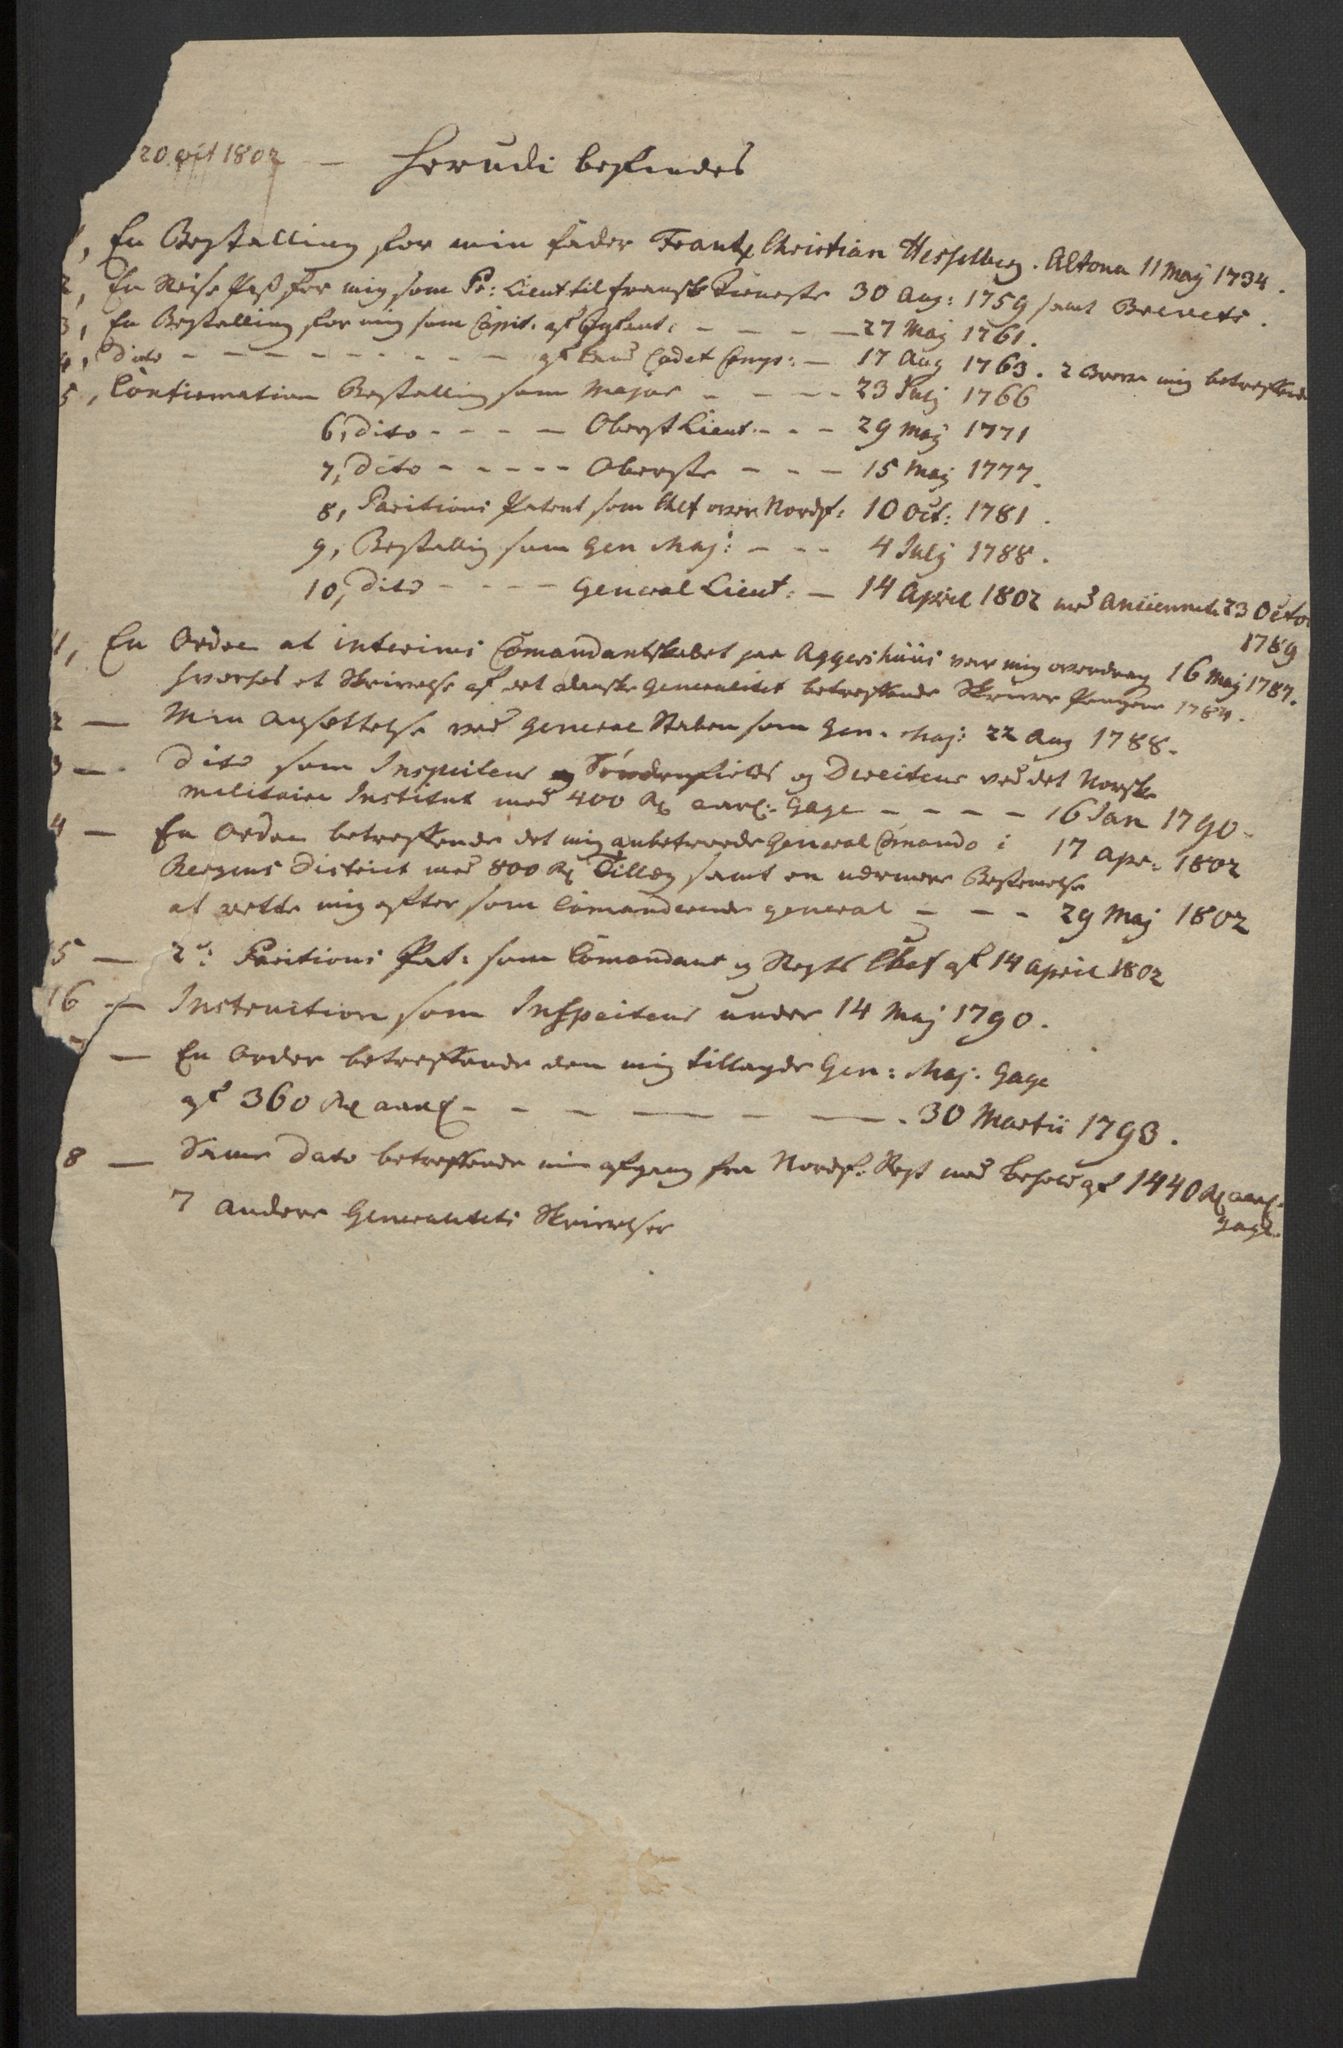 20 oct 1802 — Herudi befindes
1, En Bestalling for min fader Frantz Christian Hesselberg. Altona 11 Maij 1734.
2, En Reise Pass for mig som Pr: Lieut til fransk Tieneste 30 Aug: 1759 samt Brevets.
3, En Bestalling for mig som Capit. af - - - - 27 Maij 1761.
4, Dito - - - - - - - - - af Cadet Comp: — 17 Aug 1763. 2 Breve mig betreffende
5, Confirmation Bestalling som Major - - - - 23 Julij 1766
6, Dito - - - - - Oberst Lieut. - - - 29 Maij 1771
7, Dito - - - - - Oberste - - - 15 Maij 1777.
8, Paritions Patent som Chef over Nordf: 10 Oct: 1781.
9, Bestallig som Gen Maj: - - - 4 Julij 1788.
10, Dito - - - - General Lieut: — 14 April 1802 med Anciennete 23 Octo
1789
11, En Ordre at interims Comandantskabet paa Aggershuus var mig overdrag 16 Maij 1787.
hvorhos et Skrivelse af det danske Generalitet betreffende Pengene 1784.
2 — Min Ansættelse ved General Staben som Gen. Maj: 22 Aug 1788.
3 — Dito som Inspecteur Söndenfields og Directeur ved det Norske
militaire Institut med 400 Rd aarl: Gage - - - - 16 Jan 1790.
4 — En Ordre betreffende det mig anbetroede General Comando i 17 Apr: 1802
Bergens District med 800 Rd Tillæg samt en nærmere Bestemelse
at rette mig efter som Comanderende General - - - 29 Maij 1802
5 — 2de Paritions Pat: som Comendant og Regts Chef af 14 April 1802
16 — Instruction som Inspecteur under 14 Maij 1790.
— En Ordre betreffende den mig tillagde Gen: Maj. Gage
af 360 Rd aarl - - - — — —. 30 Martii 1793.
8 — Same Dato betreffende min afgang fra Nordf: Regt med Behold af 1440 Rd aarl.
Gage.
7 andere Generalitets Skrivelser